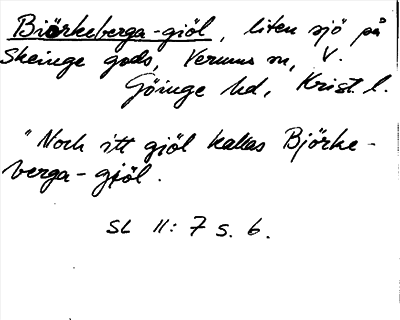 Biörkeberga-giöl, liten sjö på
Skeinge gods, Verums sn, V.
Göinge hd, Krist. l.
"Noch itt gjöl kallas Björke-
berga-gjöl.
SL 11:7 s. 6.